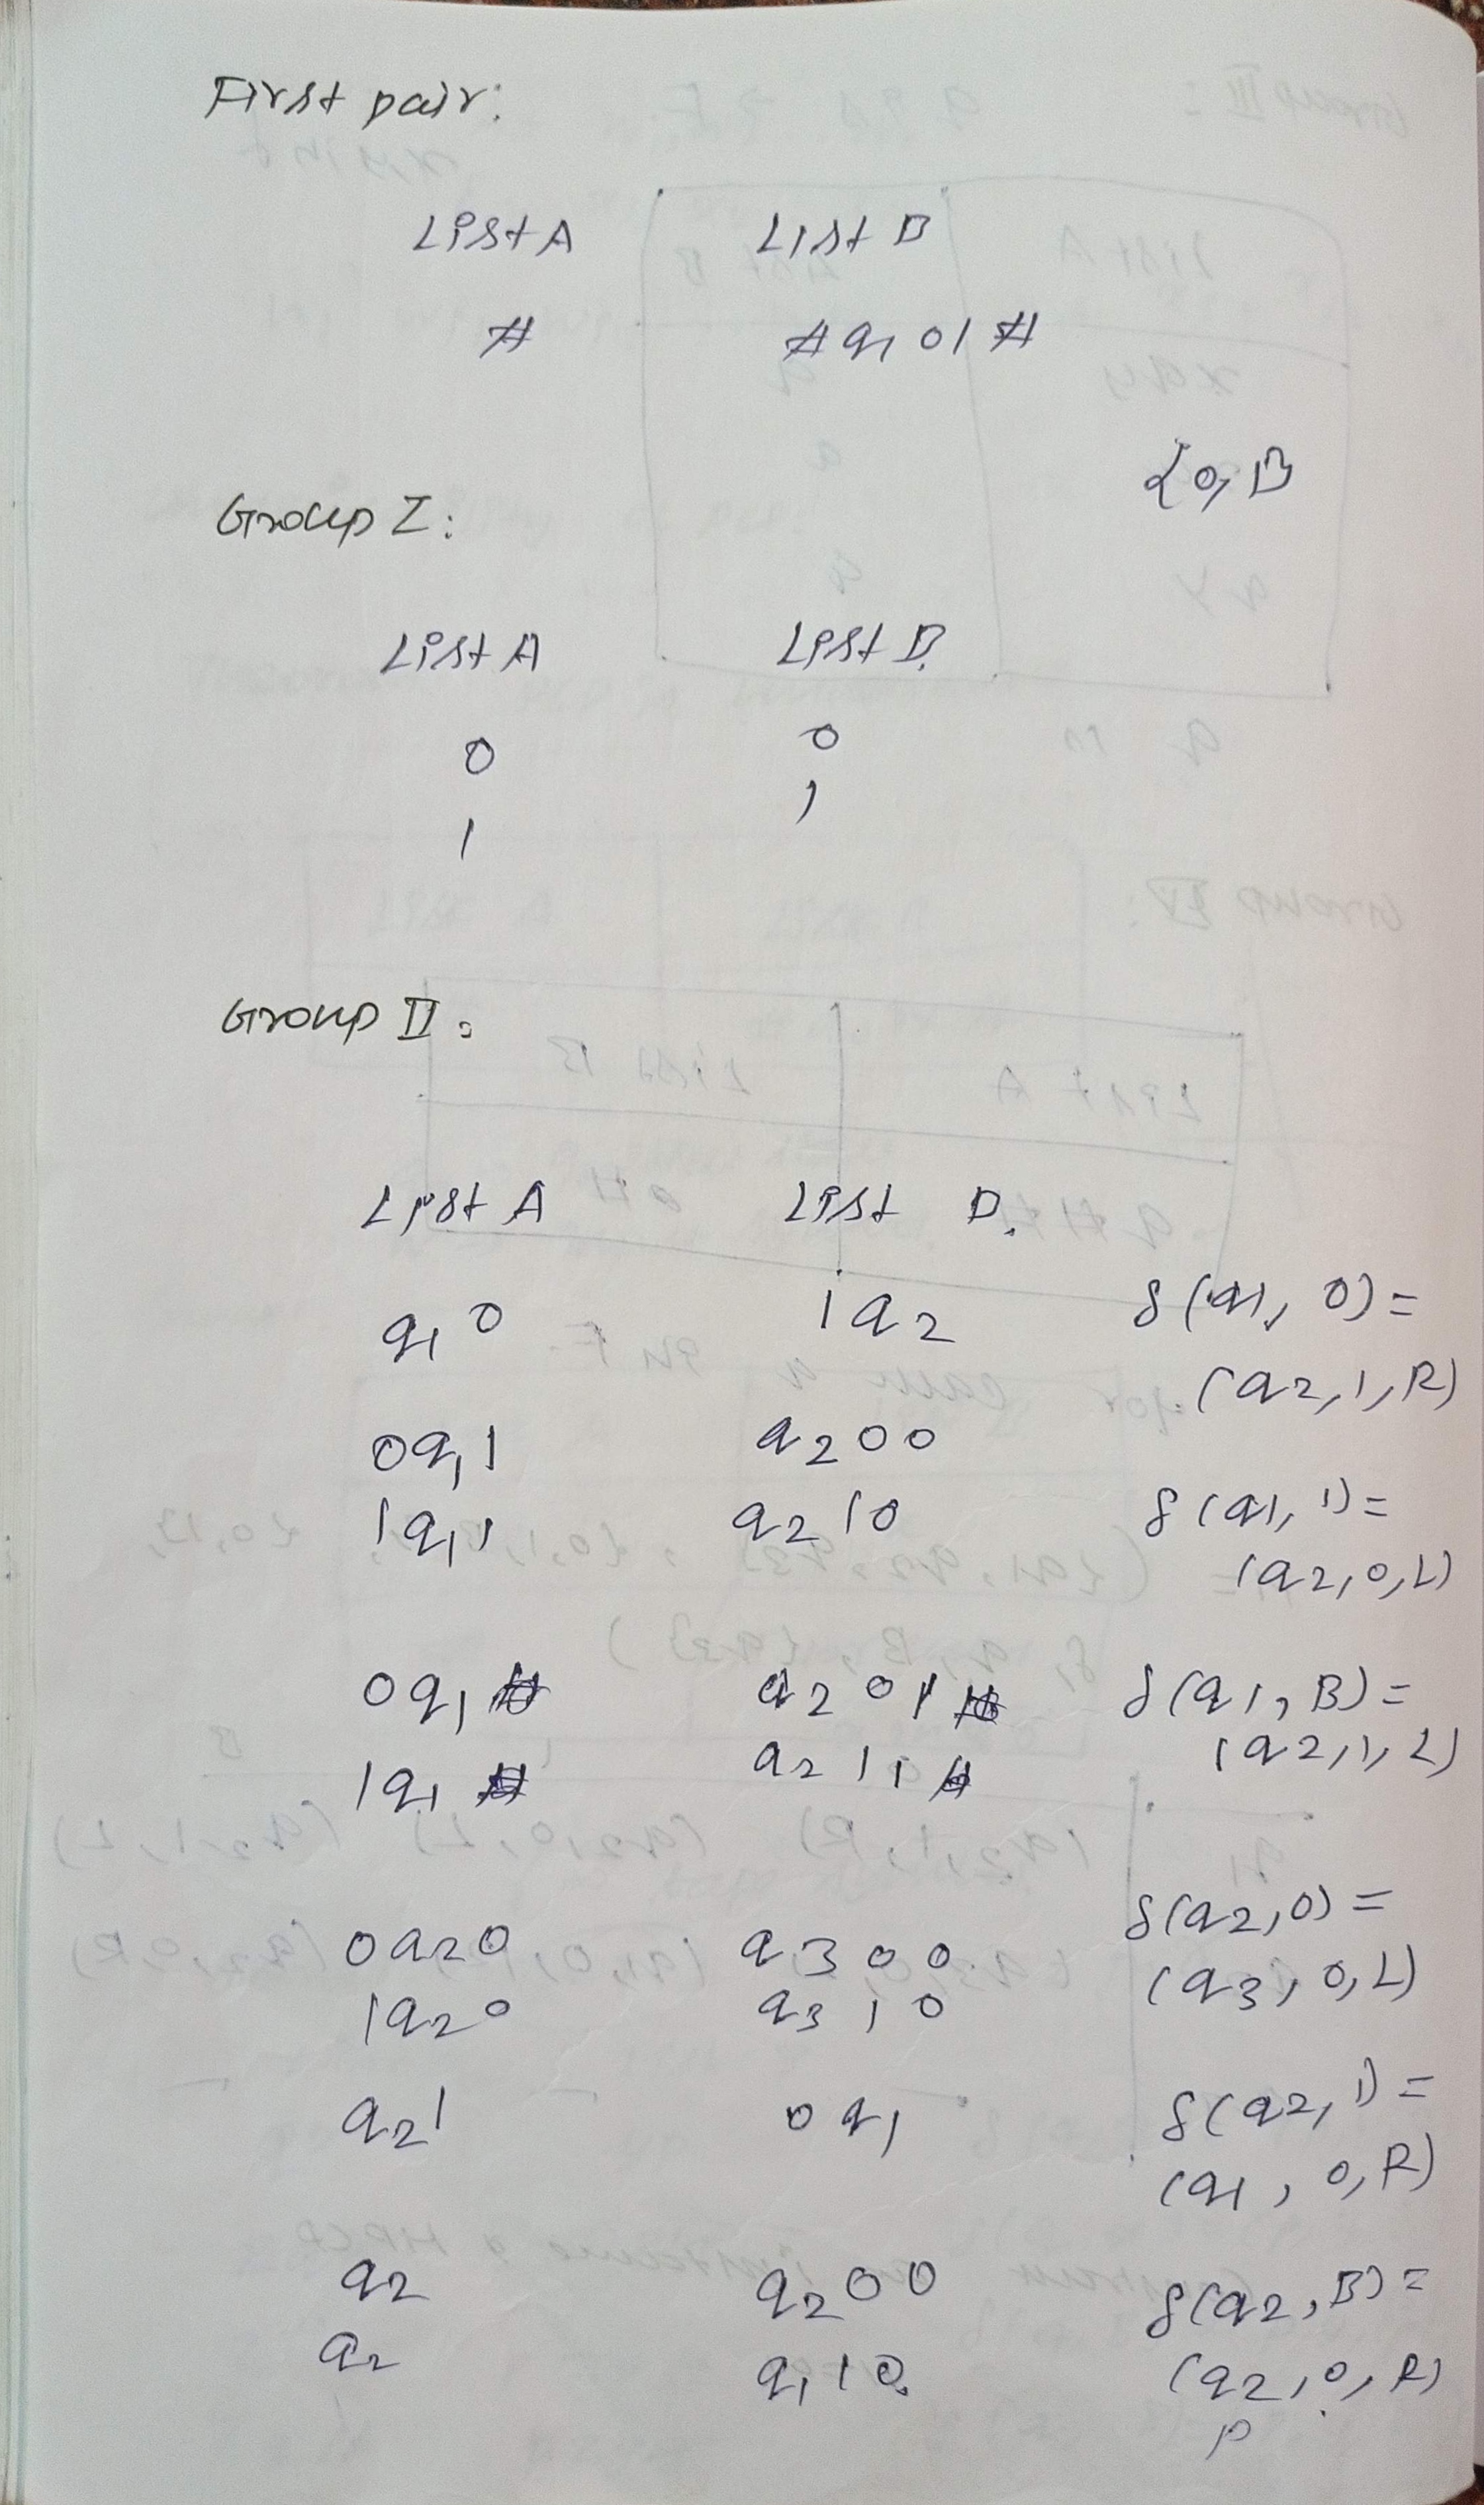 First pair:
List A List B
# #q1 01#
{0, B
Group I:
List A List B.
0 0
1 1
Group II:
List A List B.
q1 0 1 q2 δ(q1, 0) =
(q2, 1, R)
0q1 1 q2 00
1q1 1 q2 10 δ(q1, 1) =
(q2, 0, L)
0q1 q2 01 δ(q1, B) =
1q1 q2 11 (q2, 1, L)
0q20 q3 00 δ(q2, 0) =
1q20 q3 10 (q3, 0, L)
q21 0q1 δ(q2, 1) =
(q1, 0, R)
q2 q2 00 δ(q2, B) =
q2 q1 10. (q2, 0, R)